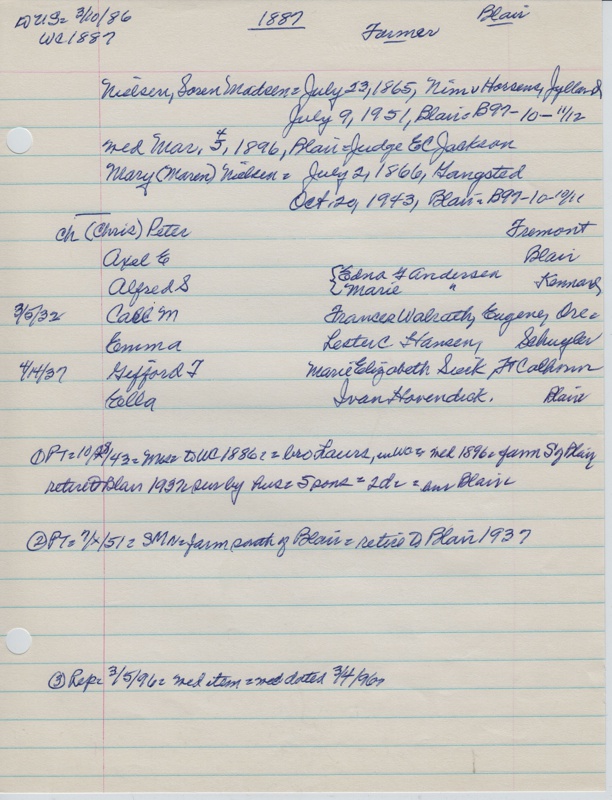 DUS= 3/10/86 1887 Blair
WC 1887 Farmer
Nielsen, Soren Madsen= July 23, 1865, Nim v Horsens, Jylland
July 9, 1951, Blair= B97-10-11/12
wed Mar. 4 5, 1896, Blair=Judge EC Jackson
Mary (Maren) Nielsen= July 2, 1866, Gangsted
Oct. 20, 1943, Blair= B97-10-10/11
Ch (Chris) Peter Fremont
Axel E Blair
Alfred S {Edna F Andersen Kennard
{Marie "
3/5/32 Carl M Frances Walrath, Eugene, Ore=
Emma Lester C Hansen, Schuyler
4/14/37 Gifford F Marie Elizabeth Sierk Ft Calhoun
Ella Ivan Hovendick. Blair
① PT= 10/28/43= Mrs= to WC 1886= = bro Laurs, in WC= wed 1896= farm S of Blair
retire to Blair 1937= sur by hus= 5 sons= 2d= = Blair
② PT= 51= SMN= farm south of Blair= retire to Blair 1937
③ Rep= 3/5/96= wed item= wed dated 3/4/96=